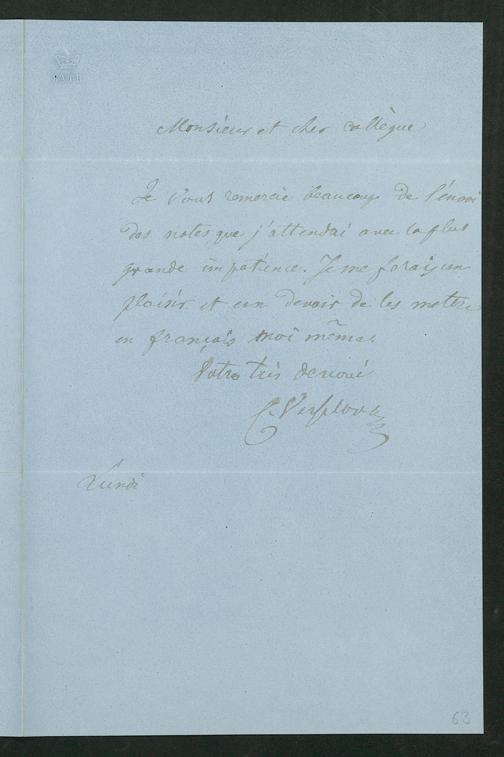 BATH
Monsieur et cher collègue
Je vous remercie beaucoup de l'énvoi
des notes que j'attendai avec la plus
grande impatience. Je me ferais un
plaisir et un devoir de les mettre
en français moi même.
Votre très devoué
Lundi
63